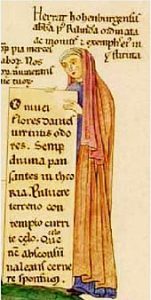 Herrat hohenburgensis
abba p Rilinda ordinata
ac monitis & exemplis ei in
stituta
pia merce
abor. Nos
ne tuor
O nivei
flores dantes
virtutis odo
res. Semp
divina pau
santes in theo
ria. Pulvere
terreno con
tempto curri
te celo. Que
nc absconsum
valeatis cerne
re sponsum